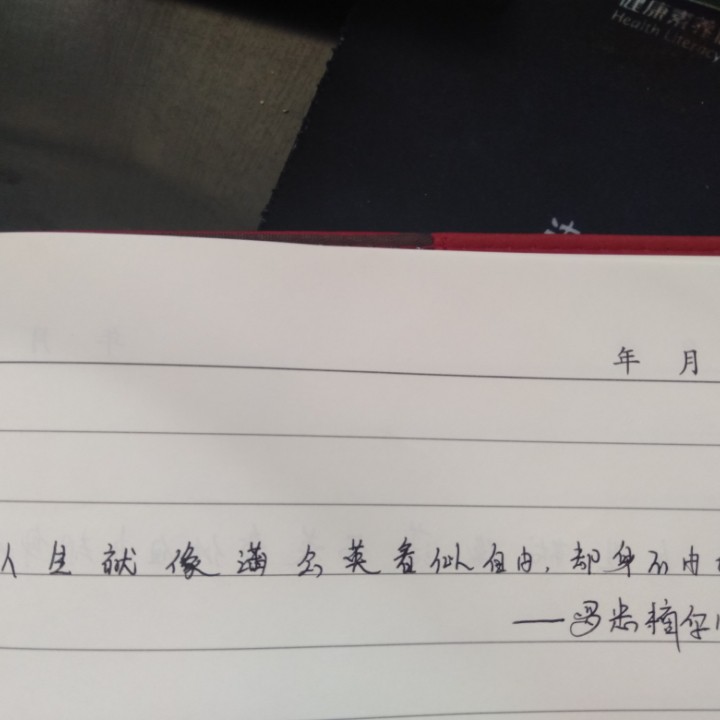 健康素养
Health Literacy
法
年 月
人生就像满公英看似自由,却身不由
——罗米